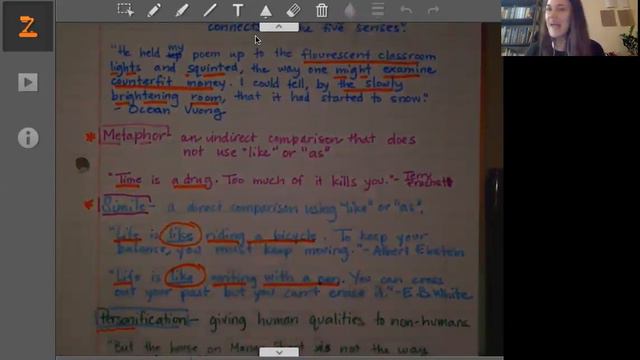 connects the five senses?
"He held my poem up to the flourescent classroom
lights and squinted, the way one might examine
counterfit money. I could tell, by the slowly
brightening room, that it had started to snow."
- Ocean Vuong
* Metaphor an undirect comparison that does
not use "like" or "as"
"Time is a drug. Too much of it kills you." - Terry
* Simile - a direct comparison using "like" or "as".
"Life is like riding a bicycle. To keep your
balance, you must keep moving." - Albert Einstein
"Life is like writing with a pen. You can cross
out your past but you can't erase it." - E.B White
Personification - giving human qualities to non-humans
"But the house on Mango is not the way